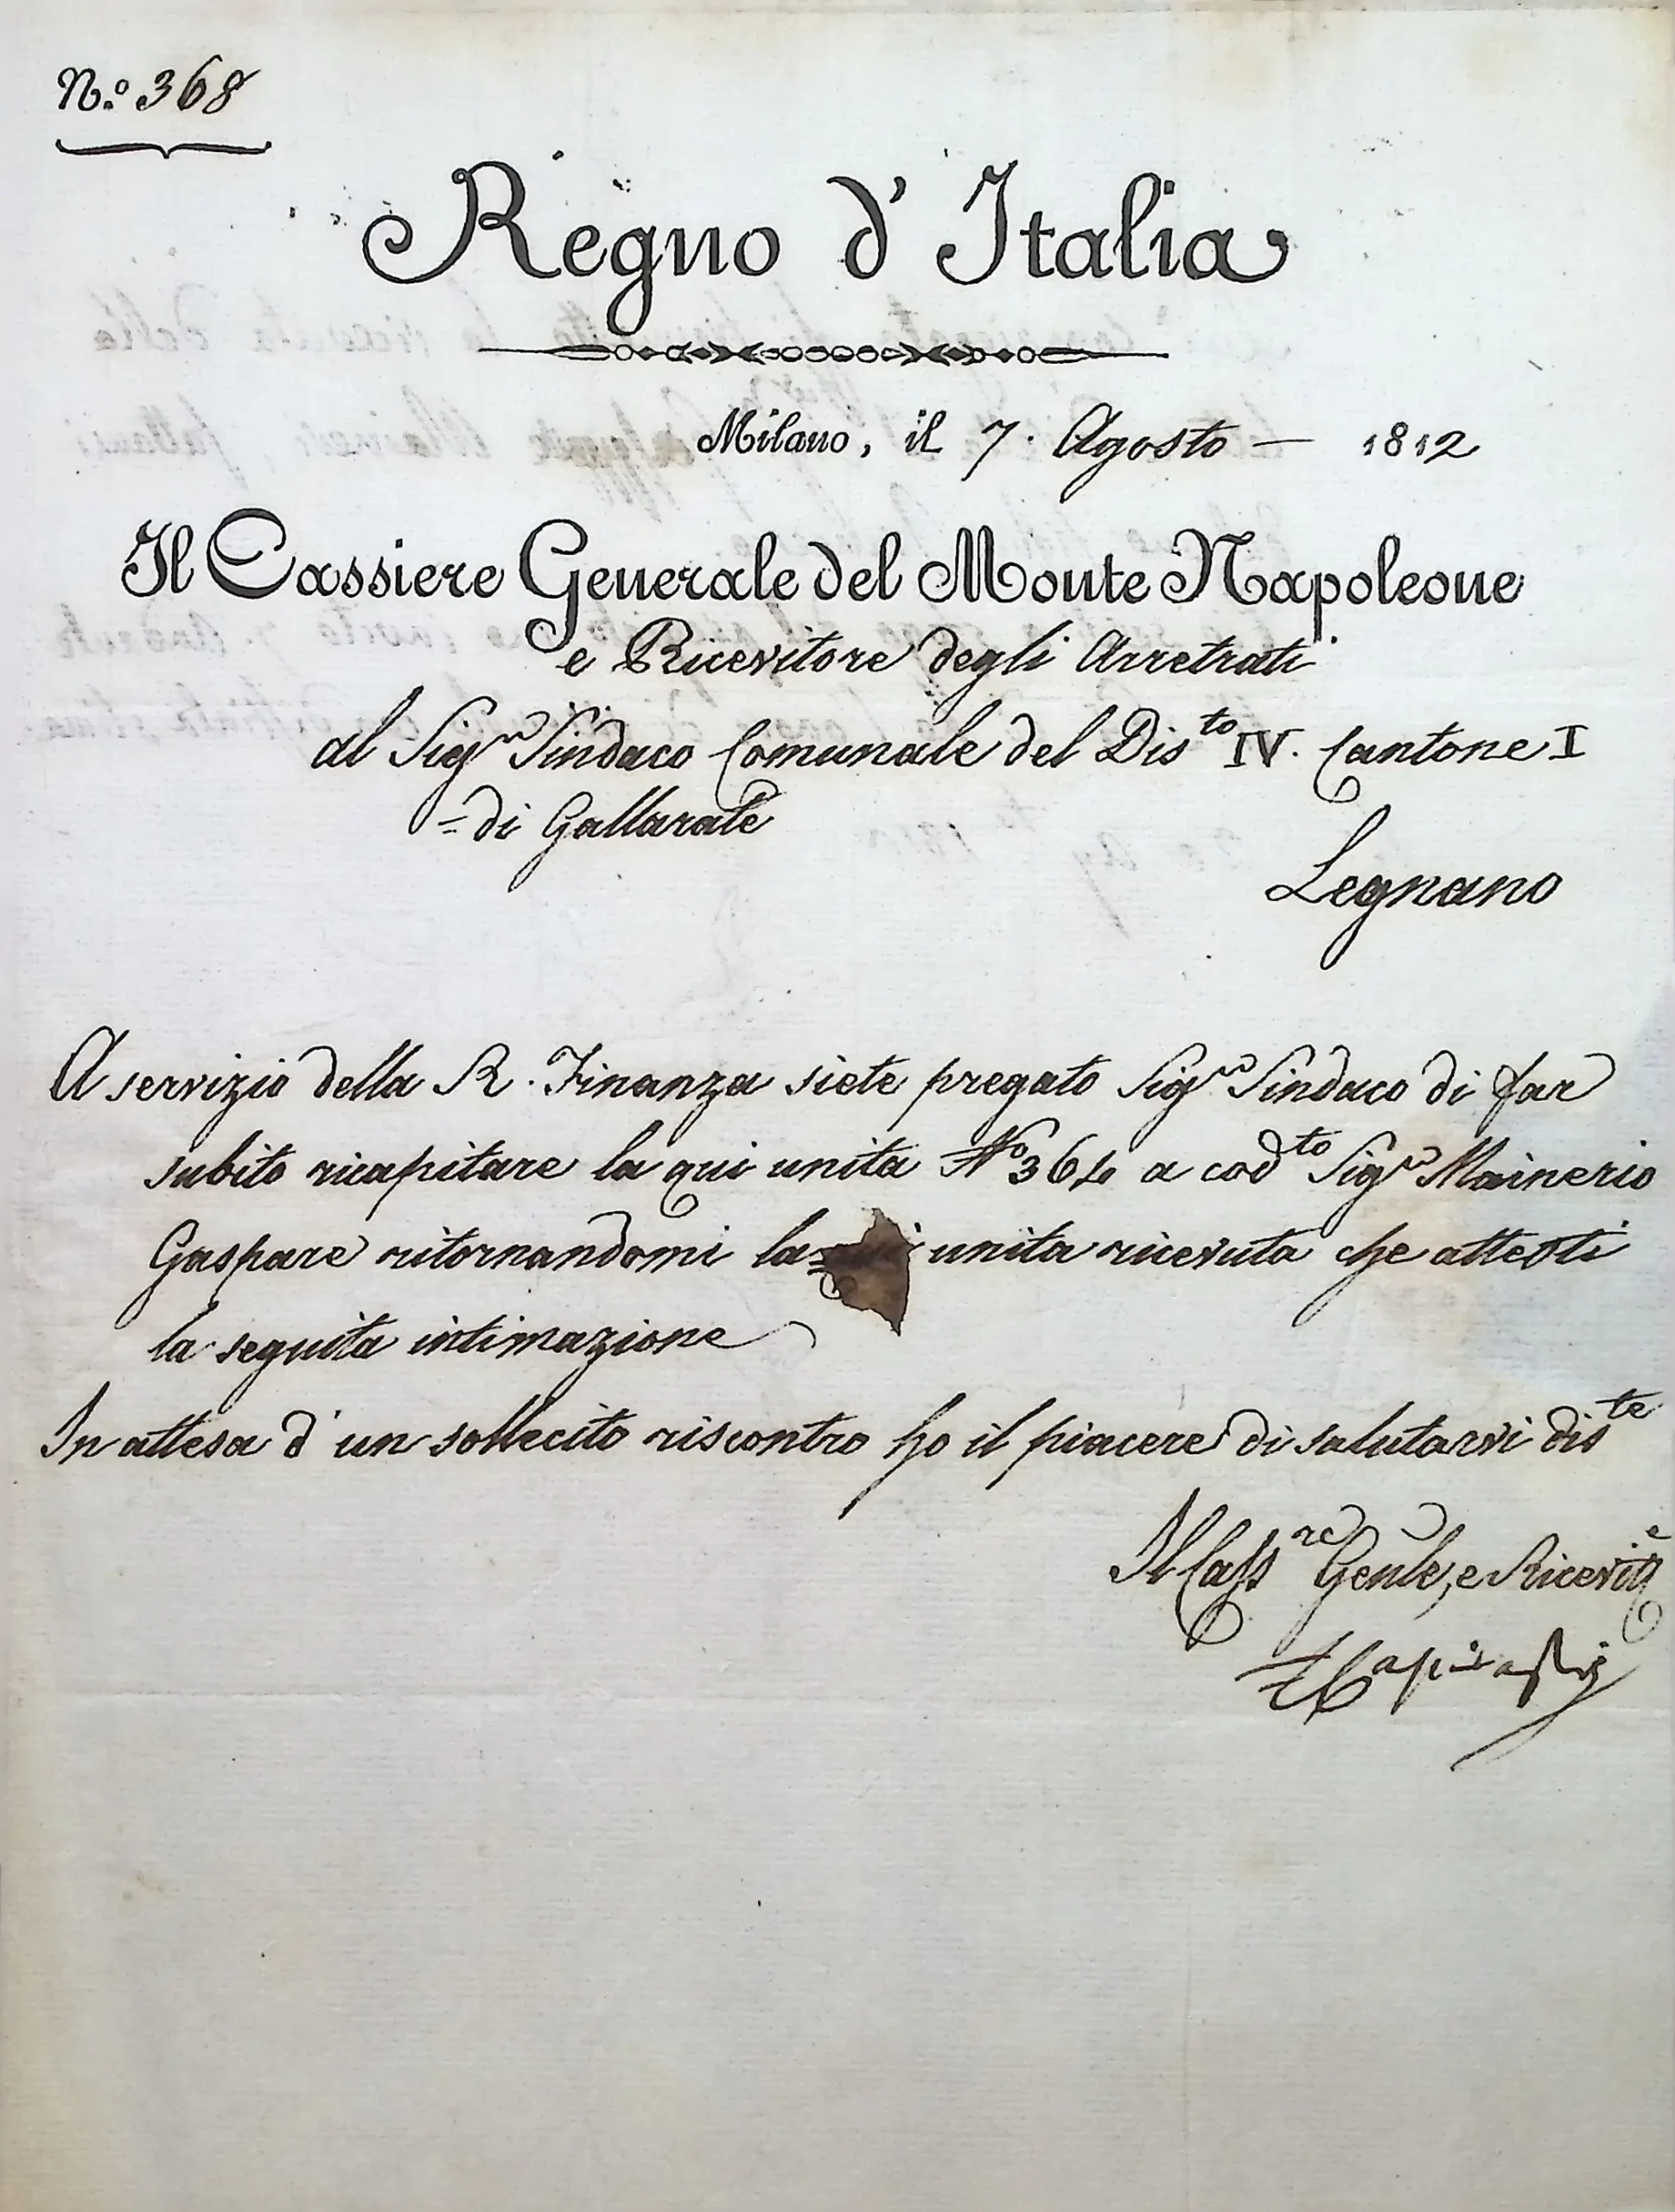 N.o 368
Regno d'Italia
Milano, il 7. Agosto — 1812
Il Cassiere Generale del Monte Napoleone
e Ricevitore degli Arretrati
al Sigr Sindaco Comunale del Disto IV. Cantone I
= di Gallarate
Legnano
A servizio della R. Finanza siete pregato Sigr Sindaco di far
subito ricapitare la qui unita No 364 a codto Sigr Mainerio
Gaspare ritornandomi la unita ricevuta che attesti
la seguita intimazione
In attesa d'un sollecito riscontro ho il piacere di salutarvi diste
Il Cassre Genle, e Ricevite